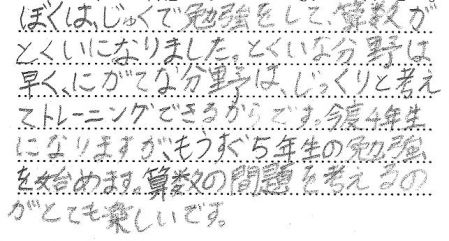 ぼくは、じゅくで勉強をして、算数が
とくいになりました。とくいな分野は
早く、にがてな分野は、じっくりと考え
てトレーニングできるからです。今度4年生
になりますが、もうすぐ5年生の勉強
を始めます。算数の問題を考えるの
がとても楽しいです。